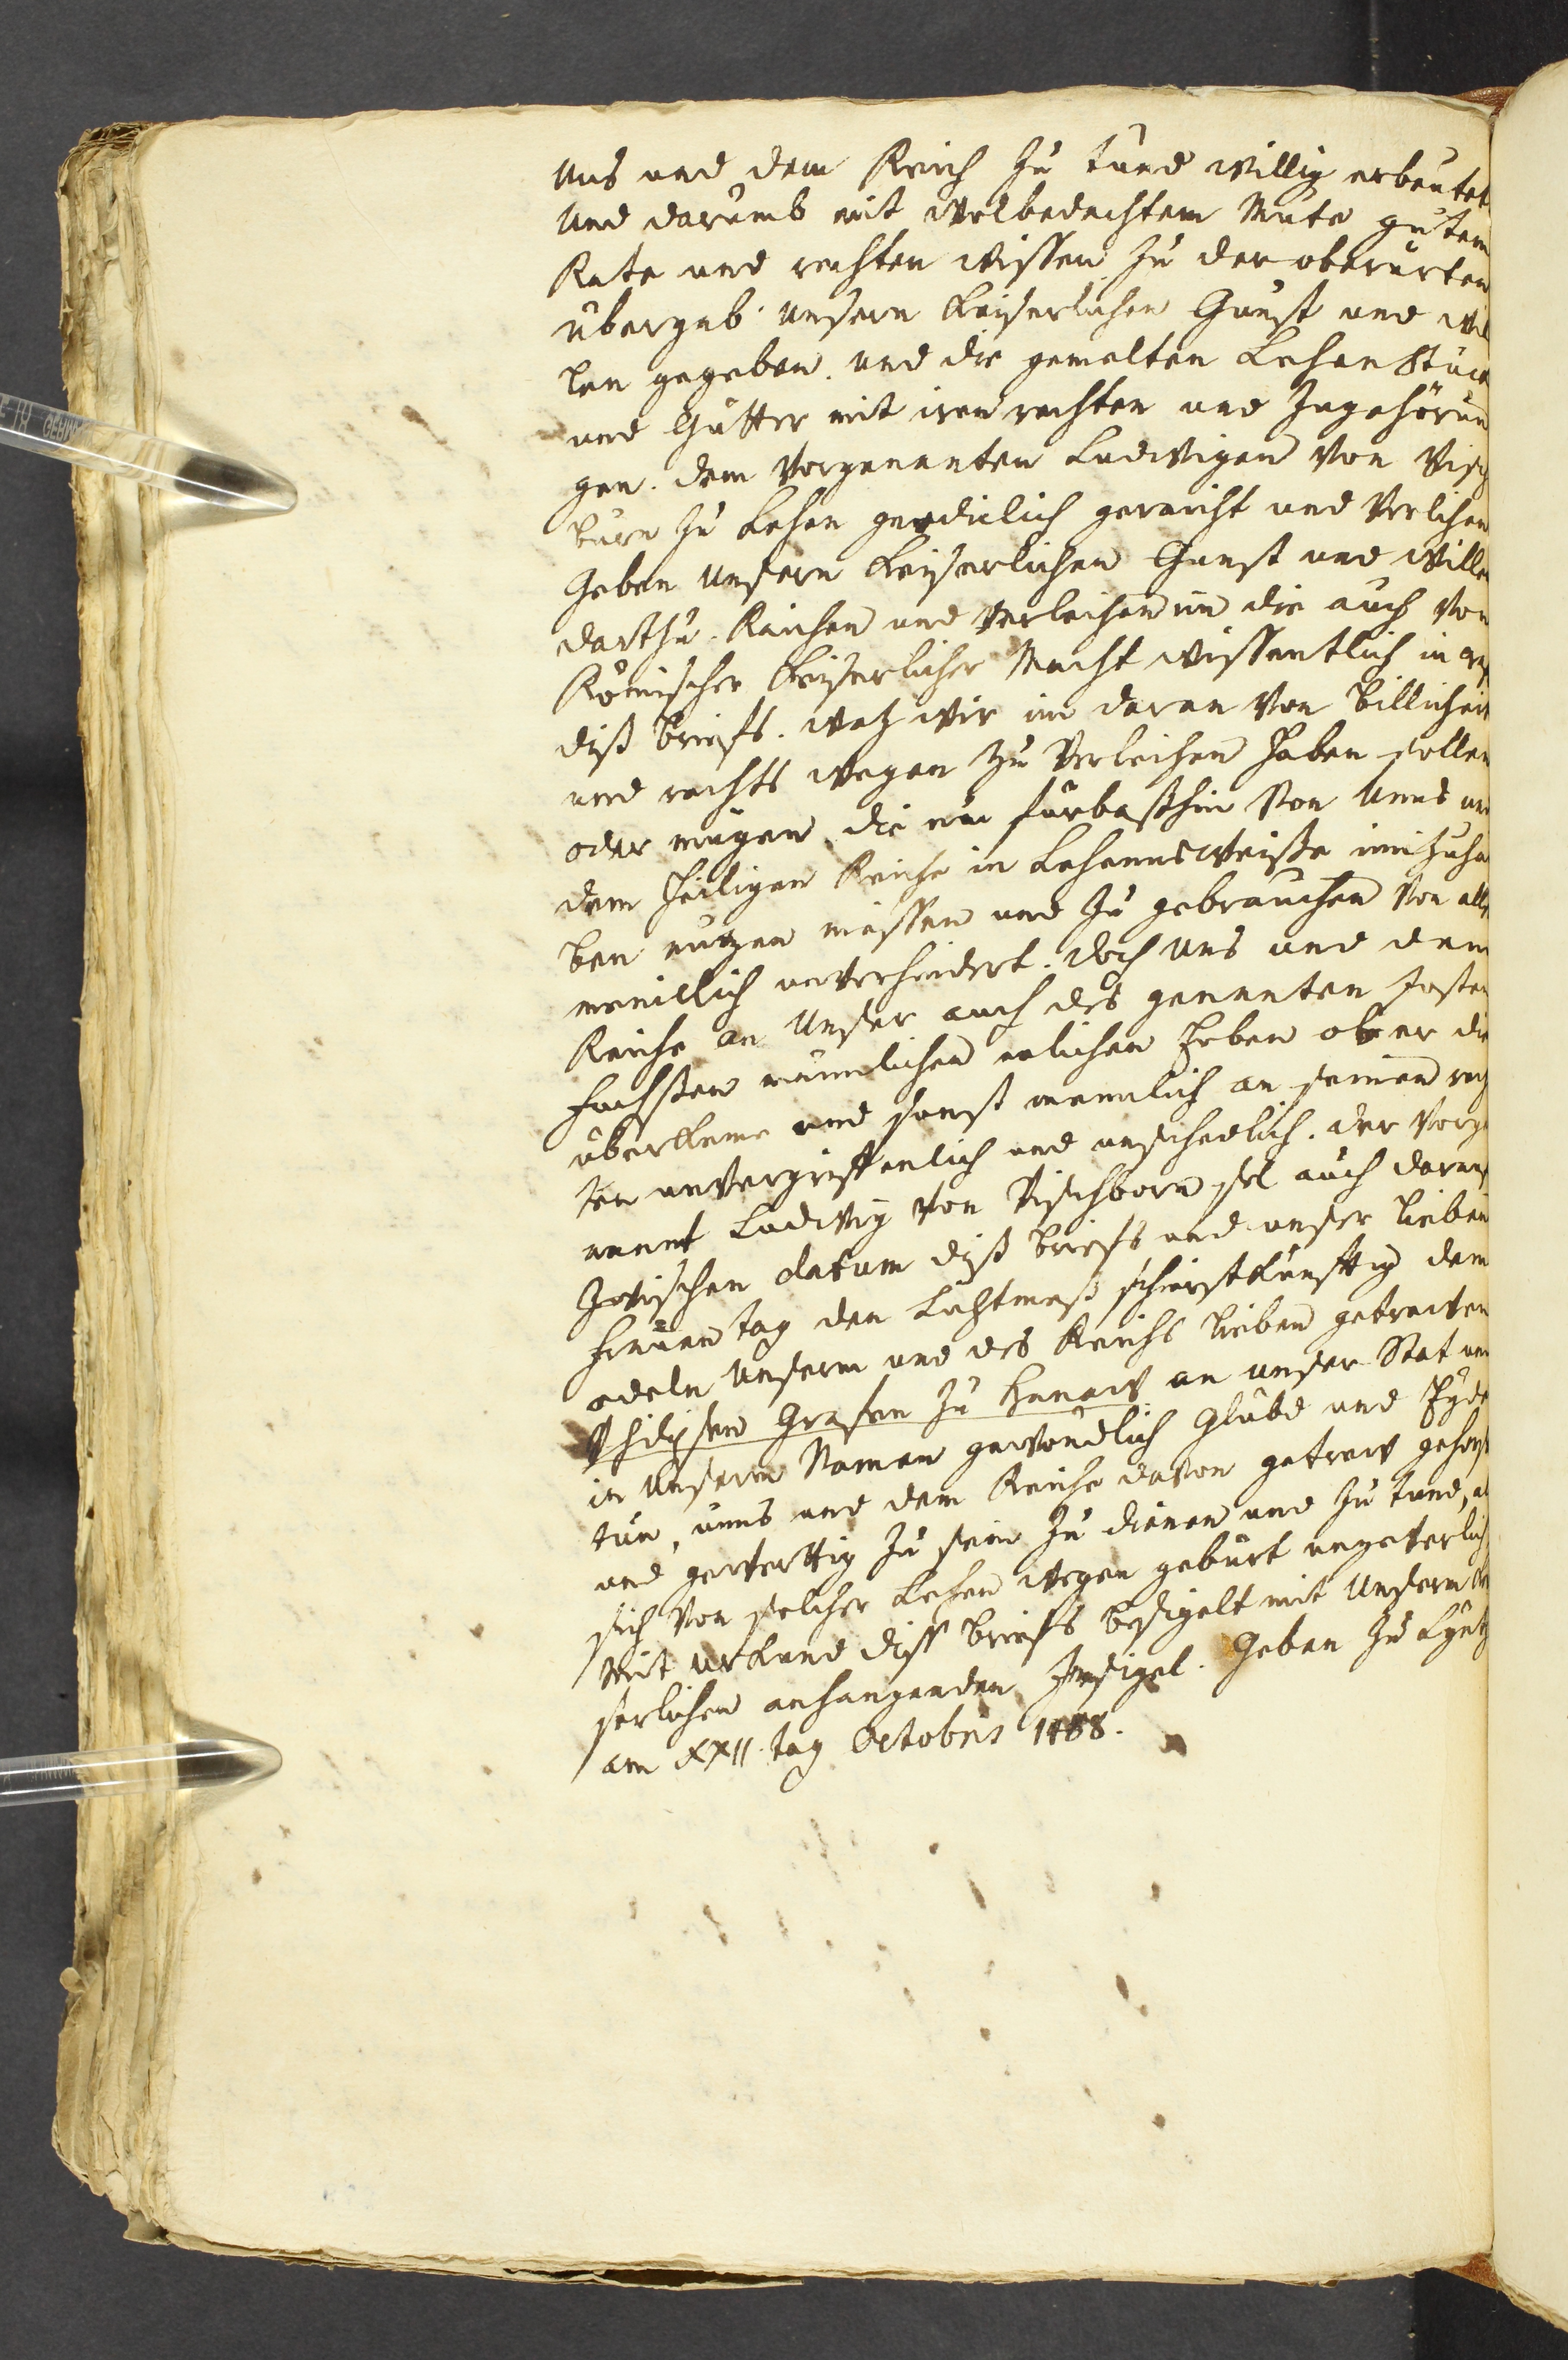 Uns und dem Reich zu tund willig erbeutet
Und darumb mit wolbedachtem Mute gutem
Rate und rechten wissen zu der oberürten
übergab unsern keiserlichen Gunst und wil
len gegeben. und die gemelten Lehen Stuck
und Gütter mit iren rechten und Zugehörun
gen. dem vorgenanten Ludwigen von Visch
burn zu Lehen gnediclich gereicht und verlihen
Geben unsern keiserlichen Gunst und willen
dartzu. Reichen und verleihen im die auch von
Römischer keiserlicher Macht wissentlich in
diß briefs. watz wir im daran von billicheit
und rechts wegen zu verleihen haben sollen
oder mügen. die nu fürbasshin von Unns und
dem heiligen Reiche in Lehennsweisse innzuha
ben nutzen niessen und zu gebrauchen von aller
meniclich unverhindert. doch uns und dem
Reiche an Unser auch des genanten Josten
fachssen mannlichen elichen Erben ob er die
überkeme und sonst menniclich an seinen rech
ten unvergriffenlich und unschedlich. der vorge
nannt Ludwig von Vischborn sol auch darauf
Zwischen datum diß briefs und unser lieben
frauen tag der Lichtmess schierstkunfftig dem
edeln unserm und des Reichs lieben getrewen
Philipsen Grafen zu Hanaw an unser Stat und
in Unserm Namen gewondlich Glübd und Eyde
tun, unns und dem Reiche davon getrew gehors
und gewerttig zu sein zu dienen und zu tund, als
sich von solcher Lehen wegen gebürt ungeverlich.
Mit urkund diß briefs besigelt mit Unserm kei
serlichen anhangenden Insigel. Geben zu
am XXII. tag Octobris 1488.